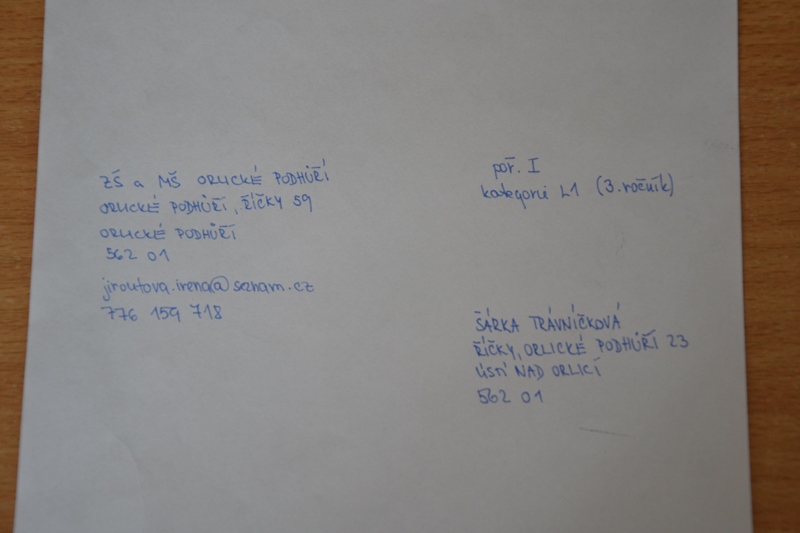 ZŠ a MŠ ORLICKÉ PODHŮŘÍ
ORLICKÉ PODHŮŘÍ, ŘÍČKY 59
ORLICKÉ PODHŮŘÍ
562 01
jiroutova.irena@seznam.cz
776 159 718
poř. I
kategorie L1 (3. ročník)
ŠÁRKA TRÁVNÍČKOVÁ
ŘÍČKY, ORLICKÉ PODHŮŘÍ 23
ÚSTÍ NAD ORLICÍ
562 01